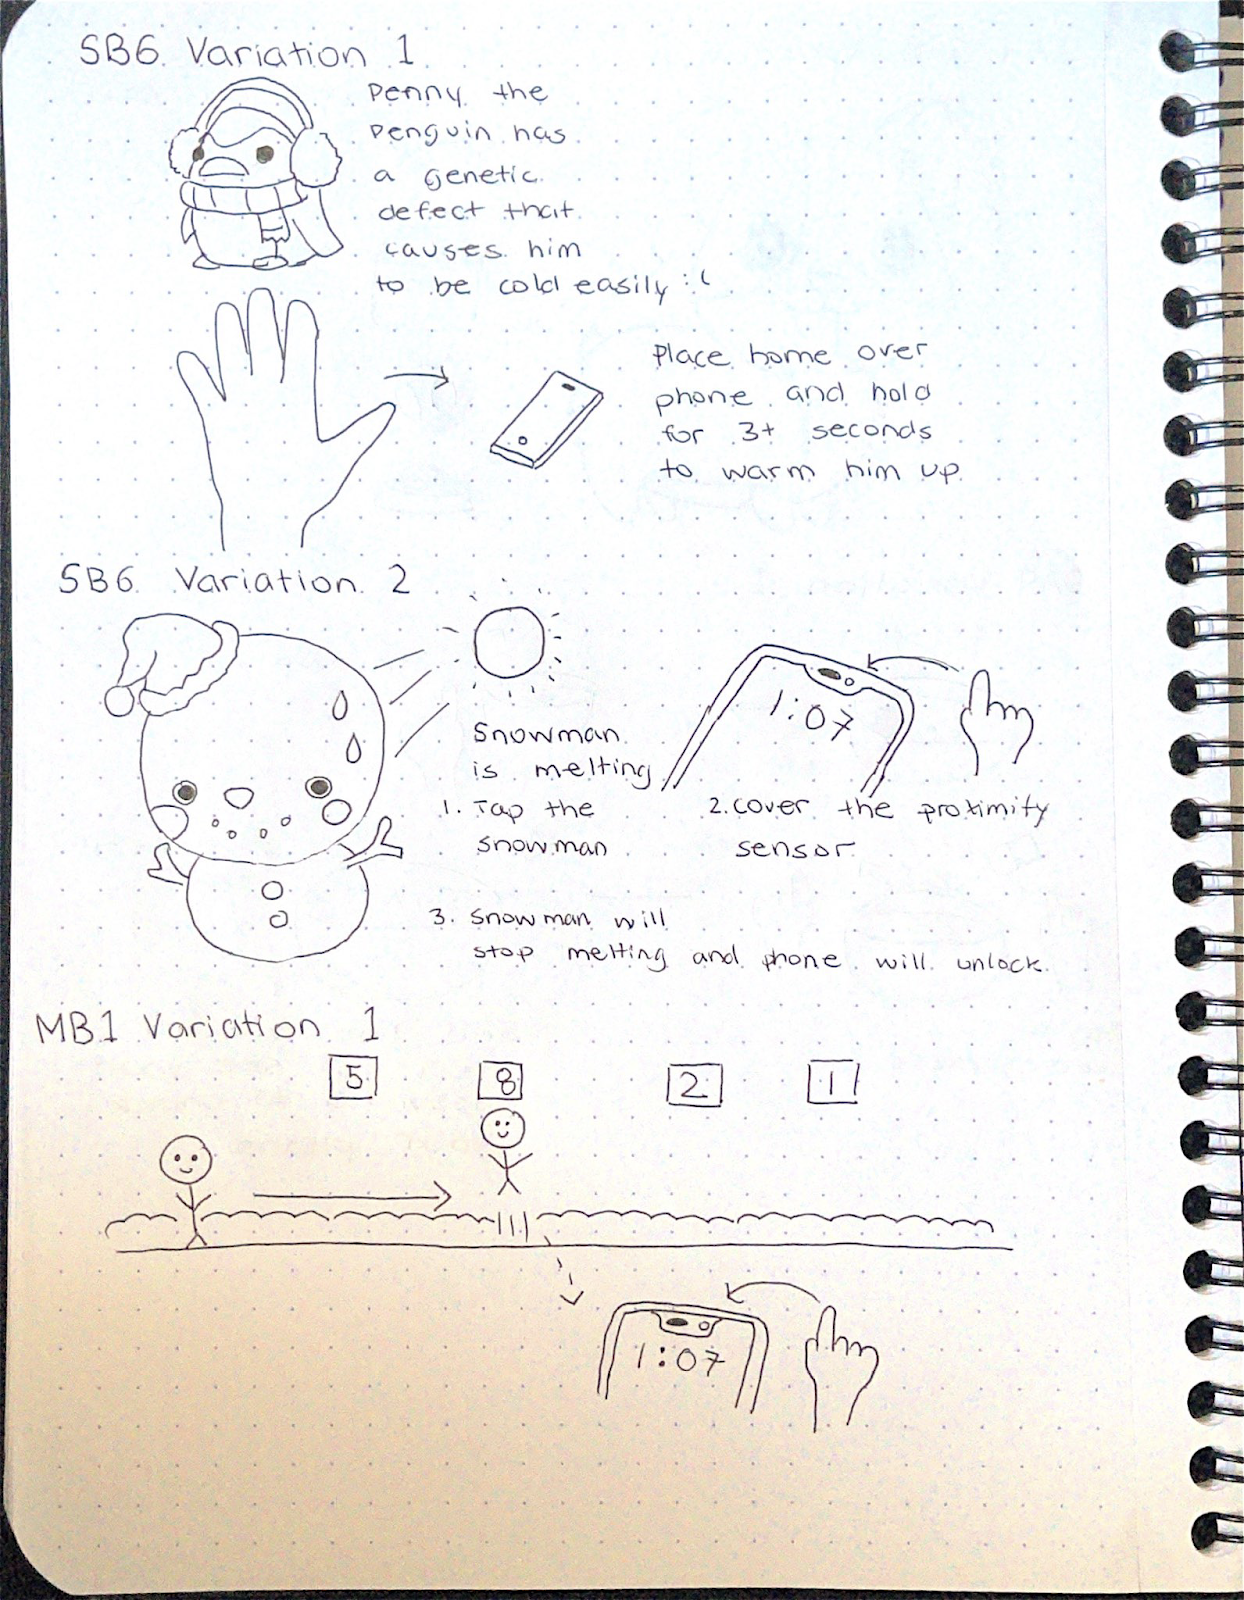 SB6 Variation 1
Penny the
Penguin has
a genetic
defect that
causes him
to be cold easily :(
Place home over
phone and hold
for 3+ seconds
to warm him up.
SB6 Variation 2
1:07
Snowman
is melting
1. Tap the
snowman
2. cover the proximity
sensor
3. Snowman will
stop melting and phone will unlock.
MB1 Variation 1
5 8 2 1
1:07